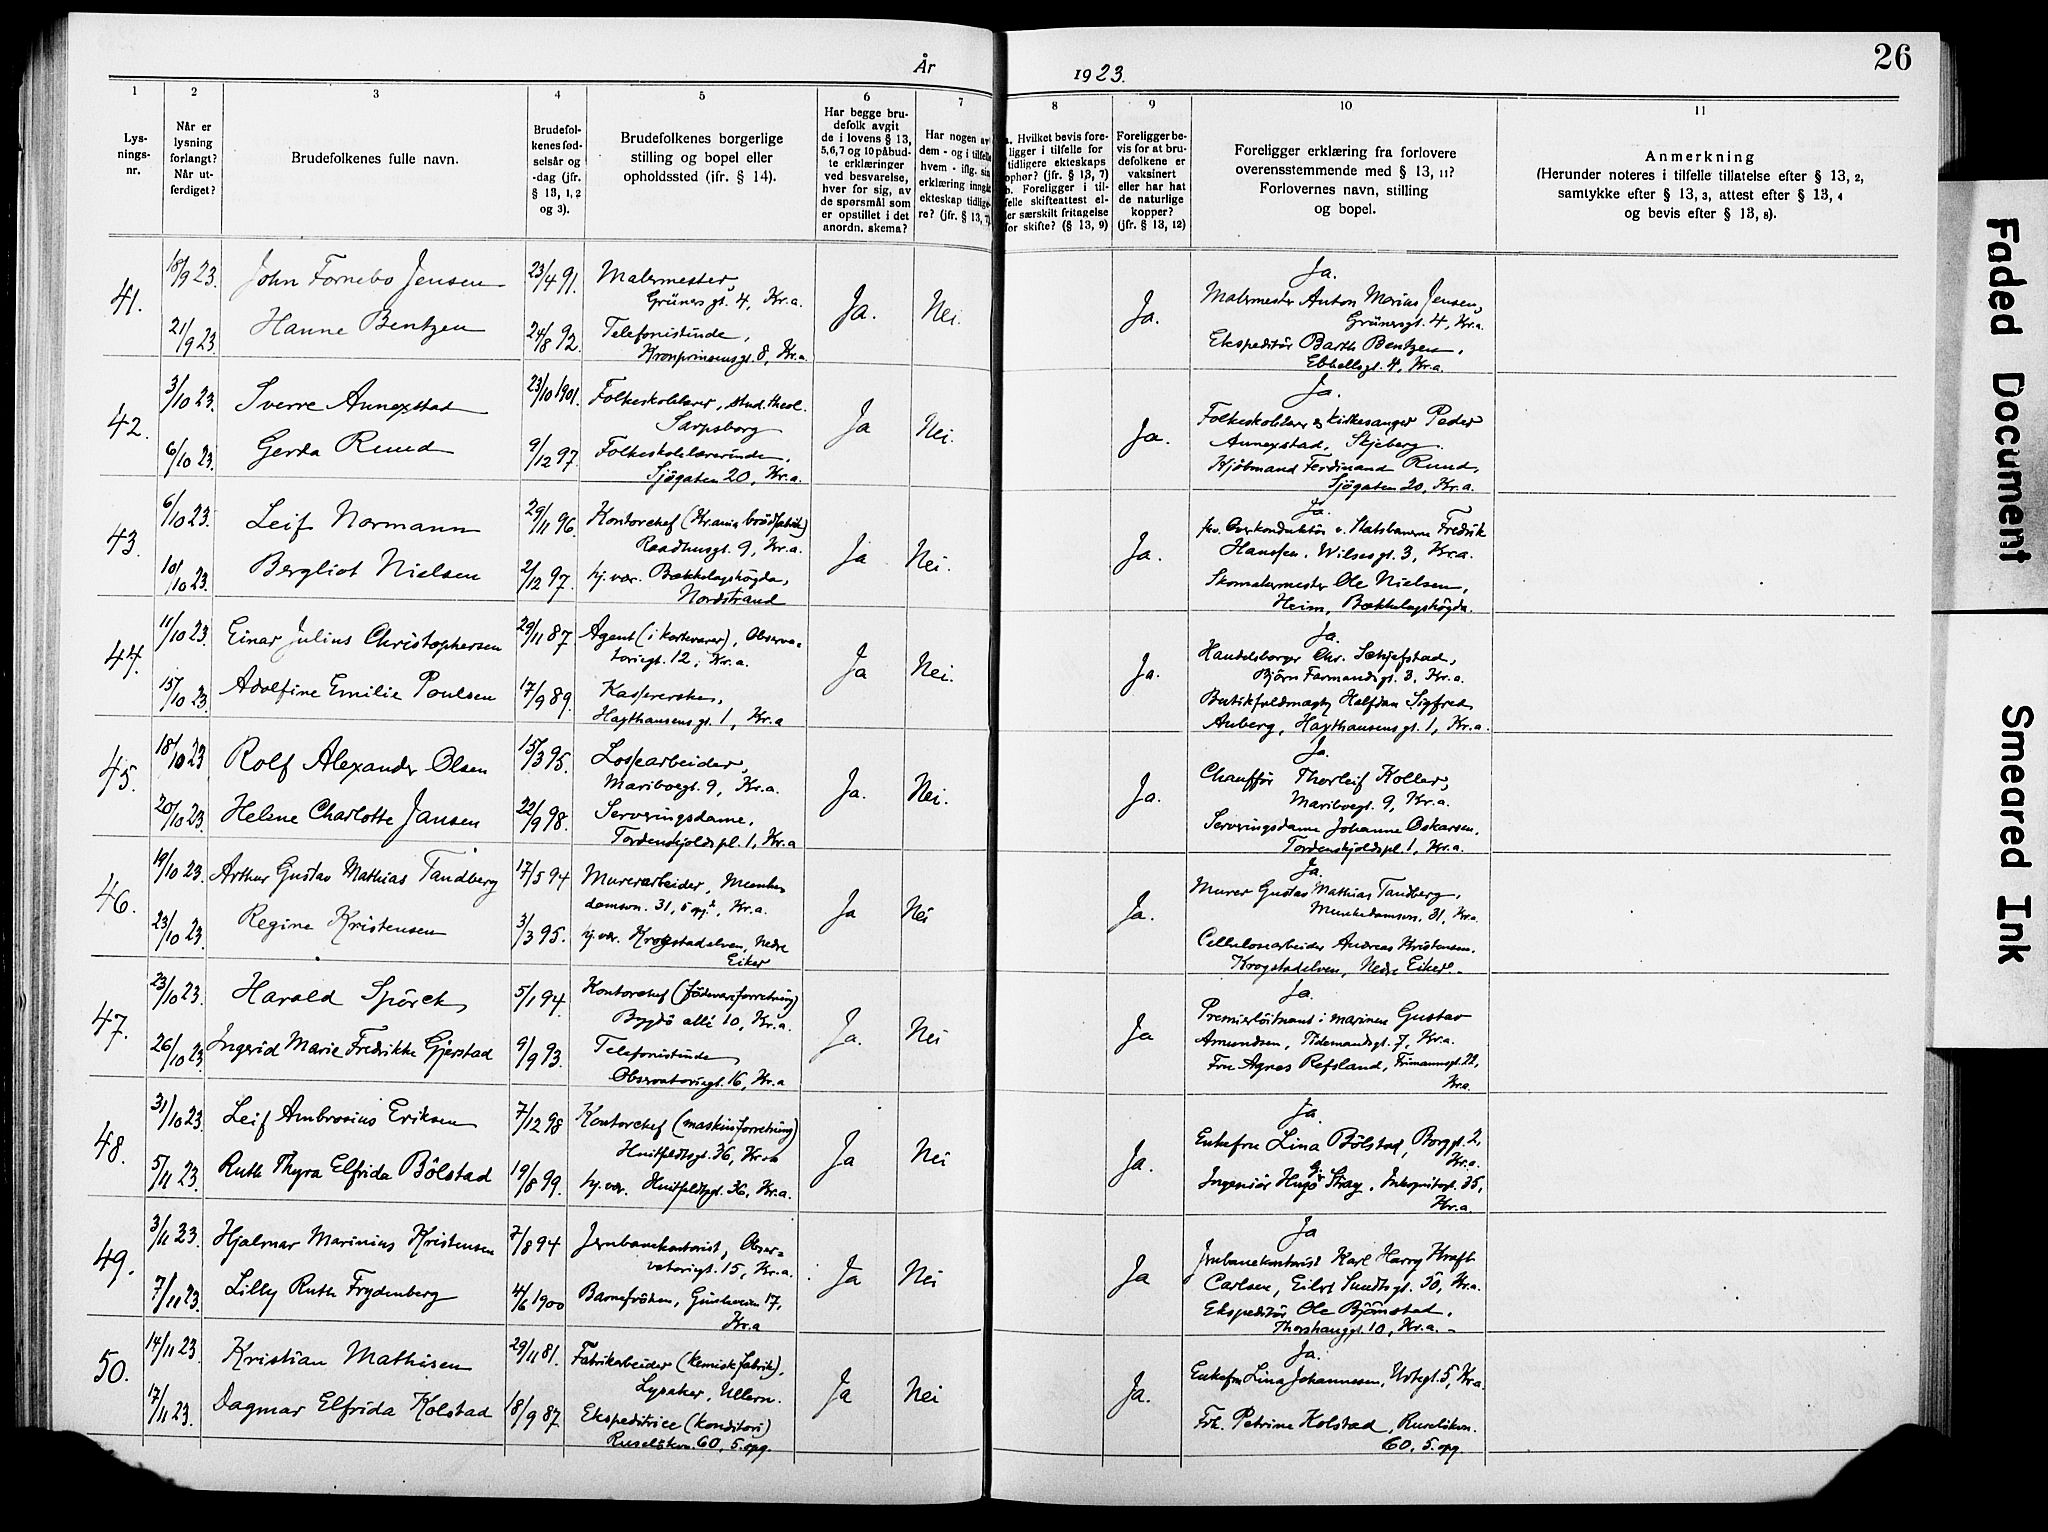 26
År 1923.
1 2 3 4 5 6 7 8 9 10 11
Lysningsnr.
Når er lysning forlangt? Når utferdiget?
Brudefolkenes fulle navn.
Brudefolkenes fødselsår og -dag (jfr. § 13, 1, 2 og 3).
Brudefolkenes borgerlige stilling og bopel eller opholdssted (jfr. § 14).
Har begge brudefolk avgit de i lovens § 13, 5, 6, 7 og 10 påbudte erklæringer ved besvarelse, hver for sig, av de spørsmål som er opstillet i det anordn. skema?
Har nogen av dem - og i tilfelle hvem - iflg. sin erklæring inngåt ekteskap tidligere? (jfr. § 13, 7)
a. Hvilket bevis foreligger i tilfelle for tidligere ekteskaps ophør? (jfr. § 13, 7)
b. Foreligger i tilfelle skifteattest eller særskilt fritagelse for skifte? (§ 13, 9)
Foreligger bevis for at brudefolkene er vaksinert eller har hat de naturlige kopper? (jfr. § 13, 12)
Foreligger erklæring fra forlovere overensstemmende med § 13, 11? Forlovernes navn, stilling og bopel.
Anmerkning
(Herunder noteres i tilfelle tillatelse efter § 13, 2, samtykke efter § 13, 3, attest efter § 13, 4 og bevis efter § 13, 8).
41. 18/9 23. John Fornebo Jensen 23/4 91. Malermester, Grünersgt. 4, Kr.a. Ja. Nei. Ja. Ja.
Malermester Anton Marius Jensen, Grünersgt. 4, Kr.a.
21/9 23 Hanne Bentzen 24/8 92. Telefonistinde, Kronprinsensgt. 8, Kr.a.
Ekspeditör Barth Bentzen, Ebbellsgt. 4, Kr.a.
42. 3/10 23. Sverre Annexstad 23/10 1901. Folkeskolelærer, stud. theol. Sarpsborg Ja Nei. Ja. Ja.
Folkeskolelærer og kirkesanger Peder Annexstad, Skjeberg.
6/10 23. Gerda Ruud 9/12 97. Folkeskolelærerinde, Sjögaten 20, Kr.a.
Kjöbmand Ferdinand Ruud, Sjögaten 20, Kr.a.
43. 6/10 23. Leif Normann 29/11 96. Kontorchef (Kr.ania brödfabrik) Raadhusgt. 9, Kr.a. Ja Nei. Ja. Ja.
fhv. Overkonduktör v. Statsbanerne Fredrik Hanssen, Wilsesgt. 3, Kr.a.
10/10 23. Bergliot Nielsen 2/12 97. hj.vær. Bækkelagshögda, Nordstrand
Skomakermester Ole Nielsen, Heim, Bækkelagshögda.
44. 11/10 23. Einar Julius Christophersen 29/11 87. Agent (i kortevarer), Observatoriegt. 12, Kr.a. Ja Nei. Ja. Ja.
Handelsborger Chr. Schjefstad, Björn Farmandsgt. 3, Kr.a.
15/10 23. Adolfine Emilie Poulsen 17/9 89. Kassererske, Haxthausensgt. 1, Kr.a
Butikfuldmægtig Halfdan Sigfred Auberg, Haxthausensgt. 1, Kr.a.
45. 18/10 23 Rolf Alexander Olsen 15/3 95. Lossearbeider, Mariboegt. 9, Kr.a. Ja. Nei. Ja. Ja.
Chaufför Thorleif Koller, Mariboegt. 9, Kr.a.
20/10 23. Helene Charlotte Jansen 22/9 98. Serveringsdame, Tordenskjoldspl. 1, Kr.a
Serveringsdame Johanne Oskarsen, Tordenskjoldspl. 1, Kr.a.
46. 19/10 23. Arthur Gustav Mathias Tandberg 17/5 94 Murerarbeider, Munkedamsvn. 31, Kr.a. Ja Nei Ja. Ja.
Murer Gustav Mathias Tandberg, Munkedamsvn. 31, Kr.a.
23/10 23. Regine Kristensen 3/3 95. hj.vær. Krogstadelven, Nedre Eiker
Cellulosearbeider Andreas Kristensen, Krogstadelven, Nedre Eiker.
47. 23/10 23. Harald Spörck 5/1 94. Kontorchef (födevareforretning) Bygdö allé 10, Kr.a. Ja. Nei Ja Ja.
Premierlöitnant i marinen Gustav Amundsen, Tidemandsgt. 7, Kr.a.
26/10 23 Ingerid Marie Fredrikke Gjerstad 9/9 93. Telefonistinde Observatoriegt. 16, Kr.a
Fru Agnes Refsland, Frimannsgt. 22, Kr.a.
48. 31/10 23. Leif Ambrosius Eriksen 7/12 98 Kontorchef (maskinforretning) Huitfeldtsgt. 36, Kr.a Ja Nei Ja. Ja.
Enkefru Lina Bölstad, Borggt. 2, Kr.a.
5/11 23. Ruth Thyra Elfrida Bölstad 19/8 99. hj.vær. Huitfeldtsgt. 36, Kr.a.
Ingeniör Hugo Stray, Inkognitogt. 35, Kr.a.
49. 3/11 23. Hjalmar Marinius Kristensen 7/8 94 Jernbanekontorist, Observatoriegt. 15, Kr.a. Ja Nei Ja Ja
Jernbanekontorist Karl Harry Kraft Carlsen, Eilert Sundtsgt. 50, Kr.a.
7/11 23. Lilly Ruth Frydenberg 4/6 1900 Barnefröken, 17, Kr.a
Ekspeditör Ole Björnstad, Thorshauggt. 10, Kr.a.
50. 14/11 23. Kristian Mathisen 29/11 81. Fabrikarbeider (kemisk fabrik), Lysaker, Ullern. Ja Nei Ja. Ja.
Enkefru Lina Johannesen, Urtegt. 5, Kr.a.
17/11 23. Dagmar Elfrida Kolstad 18/9 87. Ekspeditrice (konditori) Ruselökvn. 60, 5. opg.
Frk. Petrine Kolstad, Ruselökvn. 60, 5. opg.
Faded Document
Smeared Ink